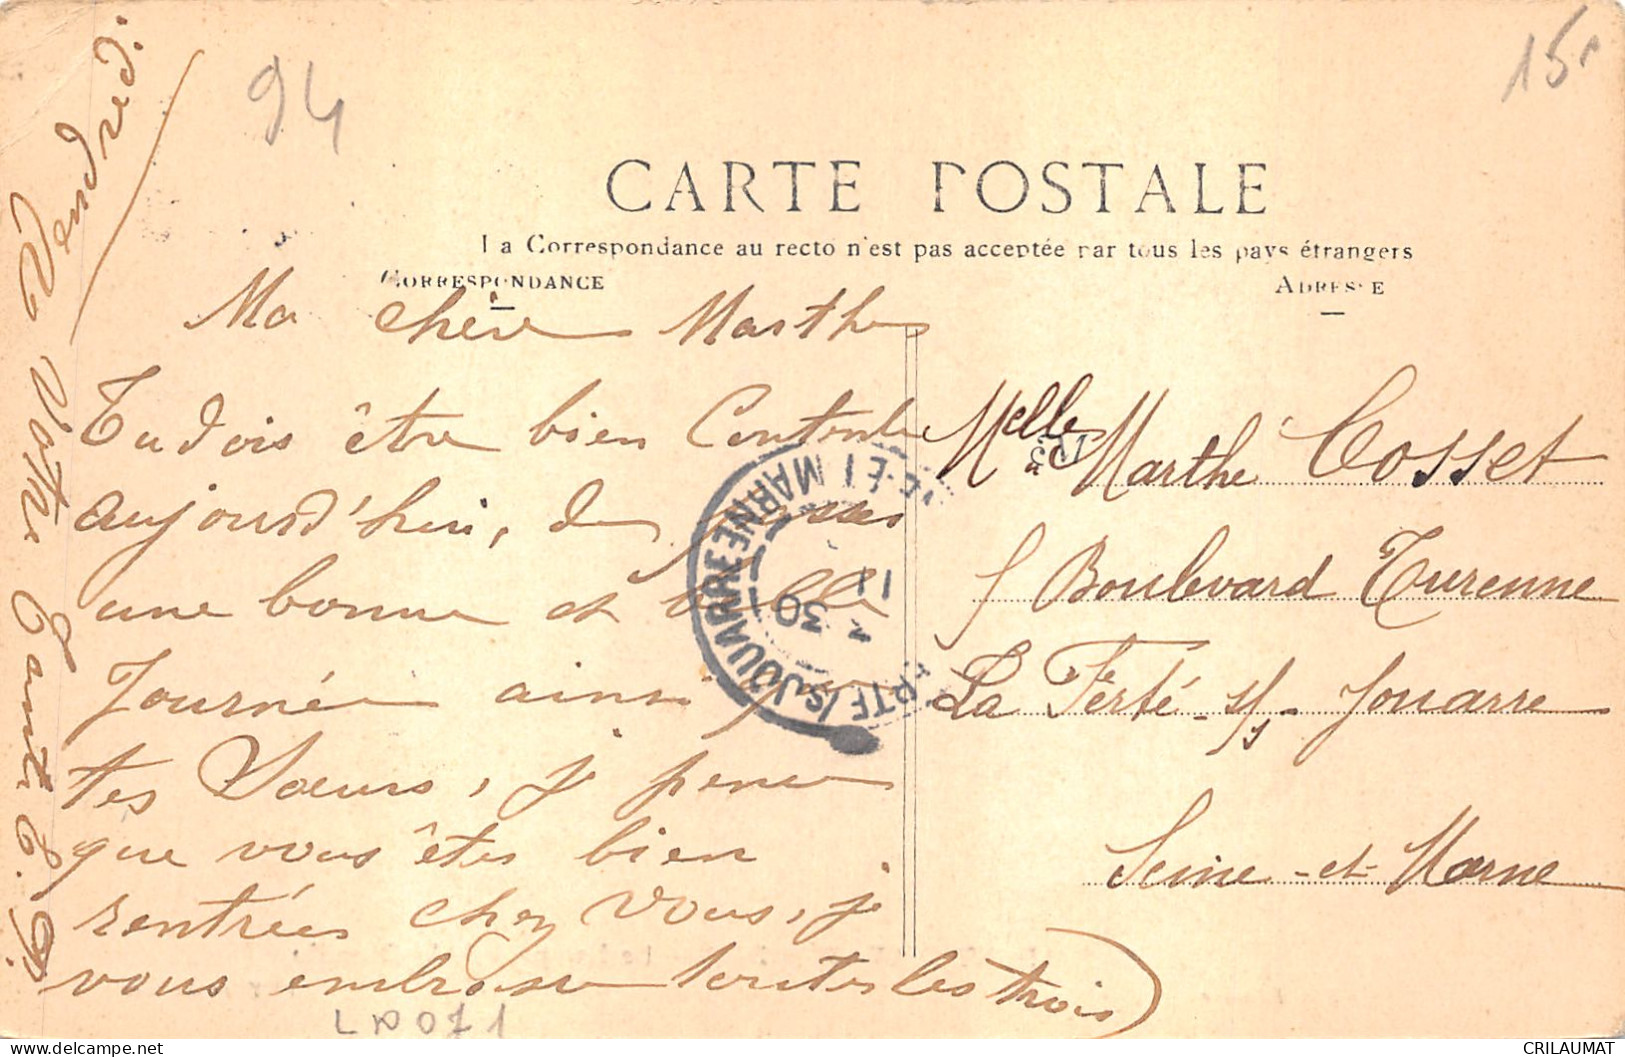 94
15
CARTE POSTALE
La Correspondance au recto n'est pas acceptée par tous les pays étrangers
CORRESPONDANCE
ADRESSE
Ma chère Marthe
Tu dois être bien Contente
aujourd'hui, de passer
une bonne et belle
Journée ainsi que
tes Sœurs, je pense
que vous êtes bien
rentrées chez vous, je
vous embrasse toutes les trois
Vendredi
Votre
Melle Marthe Cosset
5 Boulevard Turenne
La Ferté-s/s-Jouarre
Seine-et-Marne
FERTE /S JOUARRE
SEINE ET MARNE
3 30
11
CRILAUMAT
delcampe.net